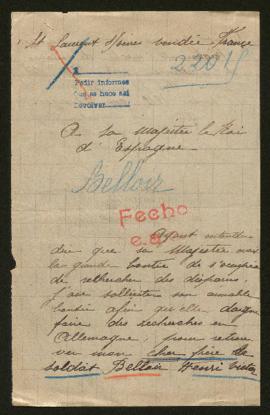 St Laurent s/sèvre vendée France
220
Pedir informes
Que se hace así
Devolver
A sa Majesté le Roi
d'Espagne
Belloir
Fecho
Ayant entendu
dire que sa Majesté avait
la grande bonté de s'occuper
de rechercher des disparus.
J'ose solliciter son aimable
bonté afin qu'elle daigne
faire des recherches en
Allemagne, pour retrou
ver mon cher frère le
soldat Belloir Henri